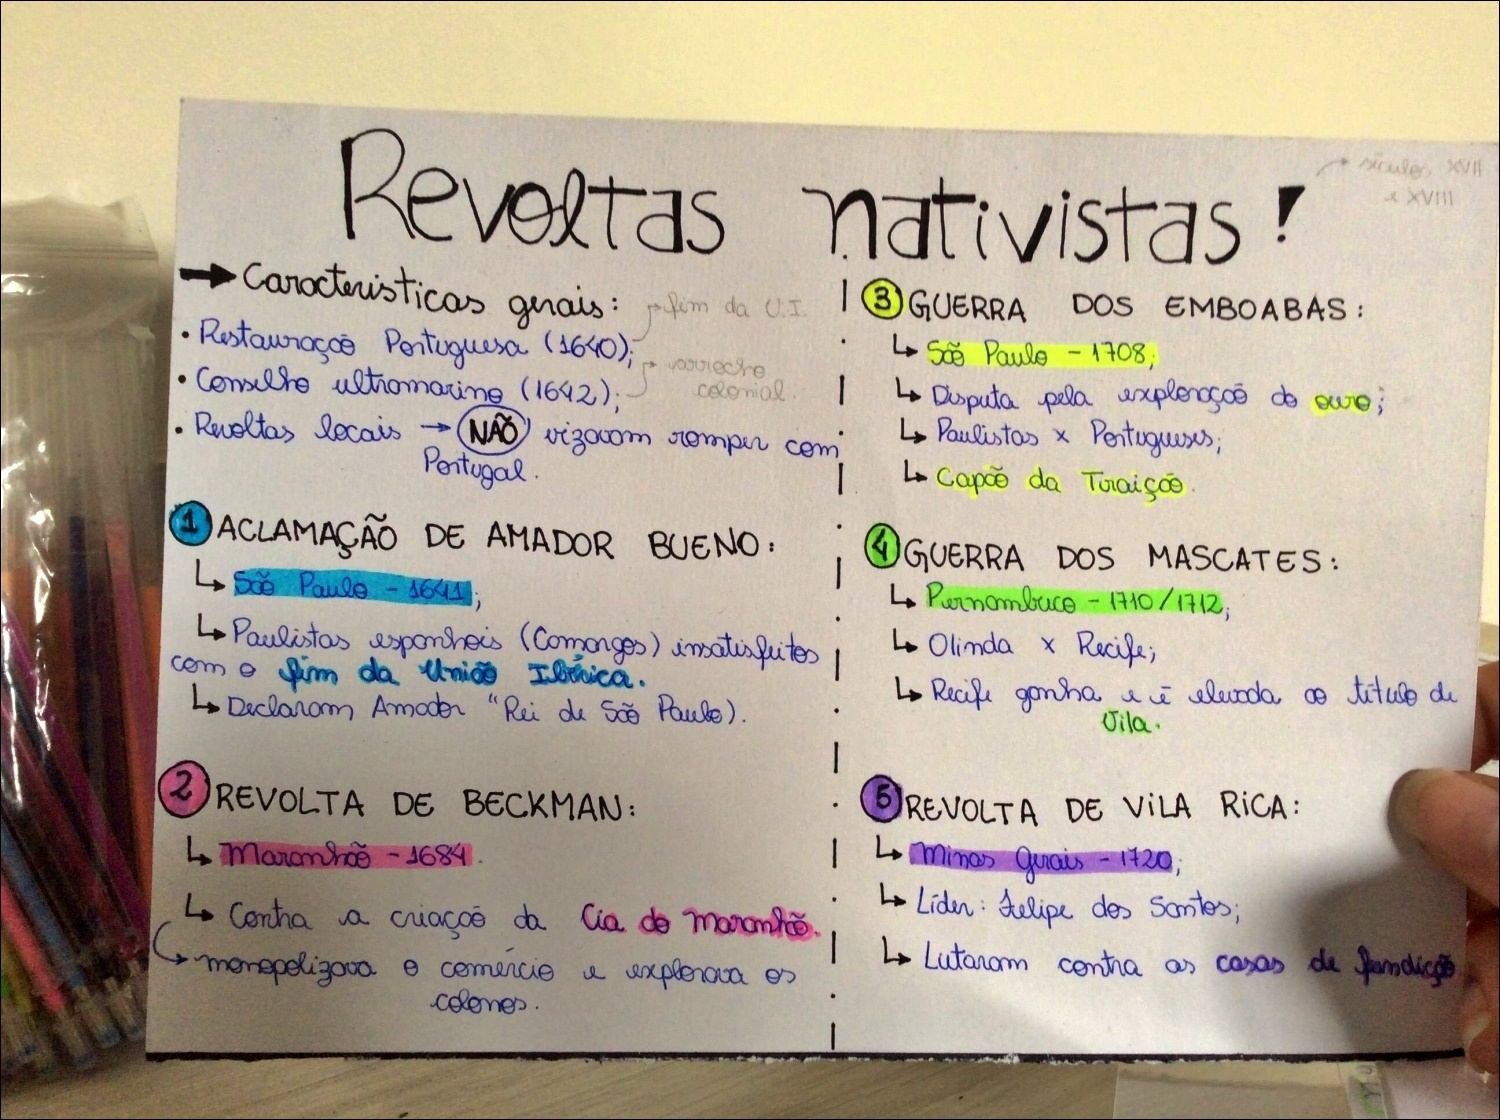 Revoltas nativistas!
→ séculos XVII
e XVIII
→ Características gerais:
• Restauração Portuguesa (1640); → fim da U.I.
• Conselho ultramarino (1642); → arrocho
colonial.
• Revoltas locais → NÃO vizavam romper com
Portugal.
1 ACLAMAÇÃO DE AMADOR BUENO:
↳ São Paulo - 1641;
↳ Paulistas espanhois (Camargos) insatisfeitos
com o fim da União Ibérica.
↳ Declaram Amador "Rei de São Paulo).
2 REVOLTA DE BECKMAN:
↳ Maranhão - 1684.
↳ Contra a criação da Cia do Maranhão.
↳ monopolizava o comércio e explorava os
colonos.
3 GUERRA DOS EMBOABAS:
↳ São Paulo - 1708;
↳ Disputa pela exploração do ouro;
↳ Paulistas x Portugueses;
↳ Capão da Traição.
4 GUERRA DOS MASCATES:
↳ Pernambuco - 1710/1712;
↳ Olinda x Recife;
↳ Recife ganha e é elevada ao título de
Vila.
5 REVOLTA DE VILA RICA:
↳ Minas Gerais - 1720;
↳ Líder: Felipe dos Santos;
↳ Lutaram contra as casas de fundição